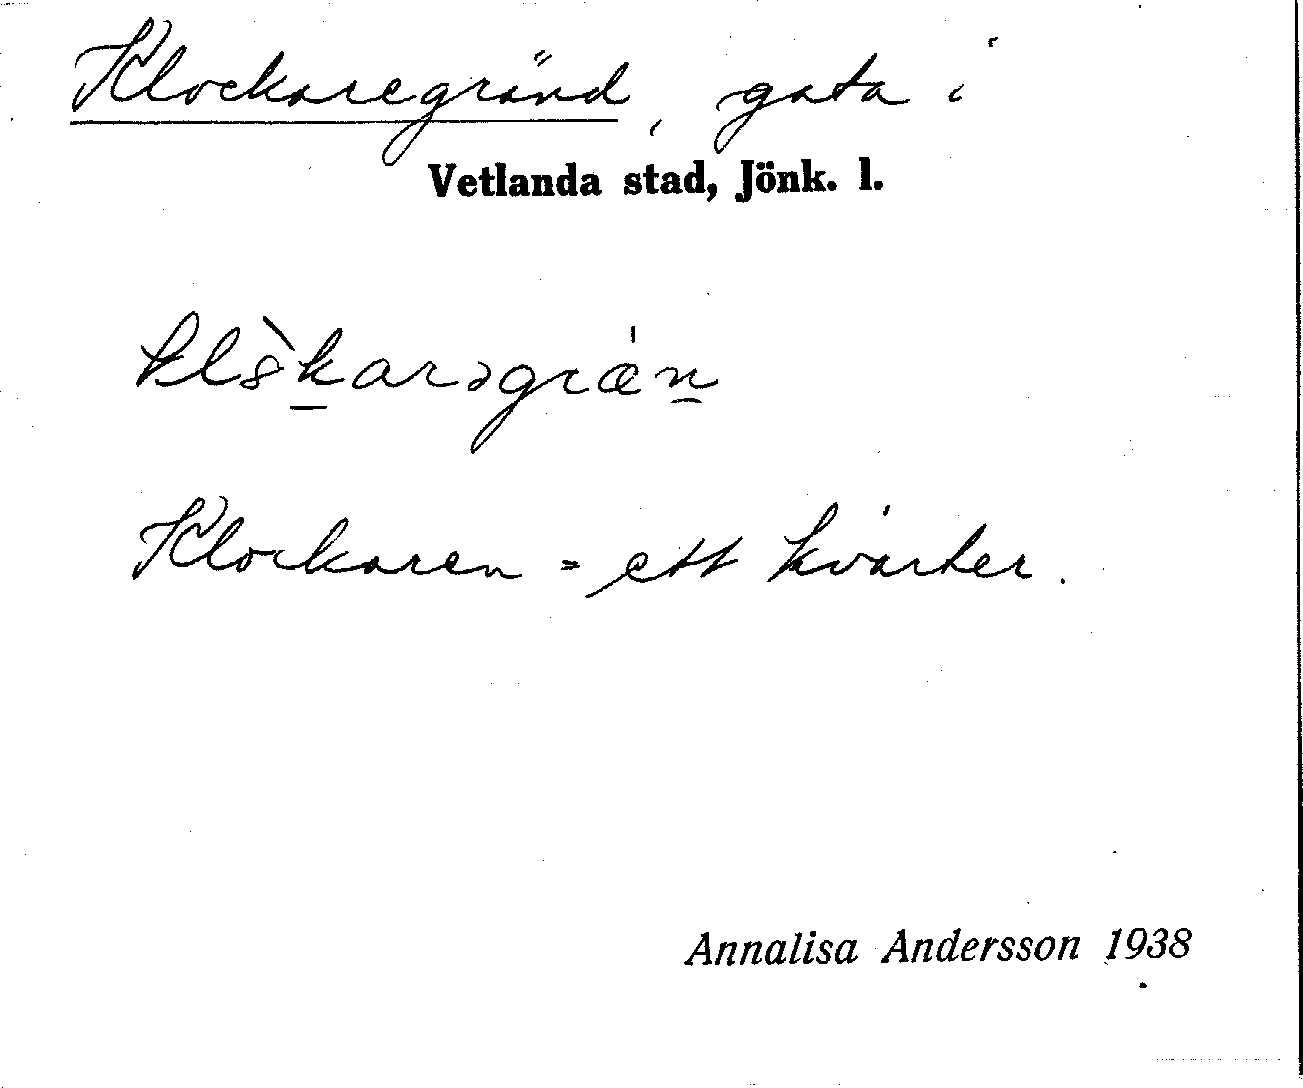 Klockaregränd, gata i
Vetlanda stad, Jönk. l.
klòk̲arəgræ'n̲
Klockaren = ett kvarter.
Annalisa Andersson 1938